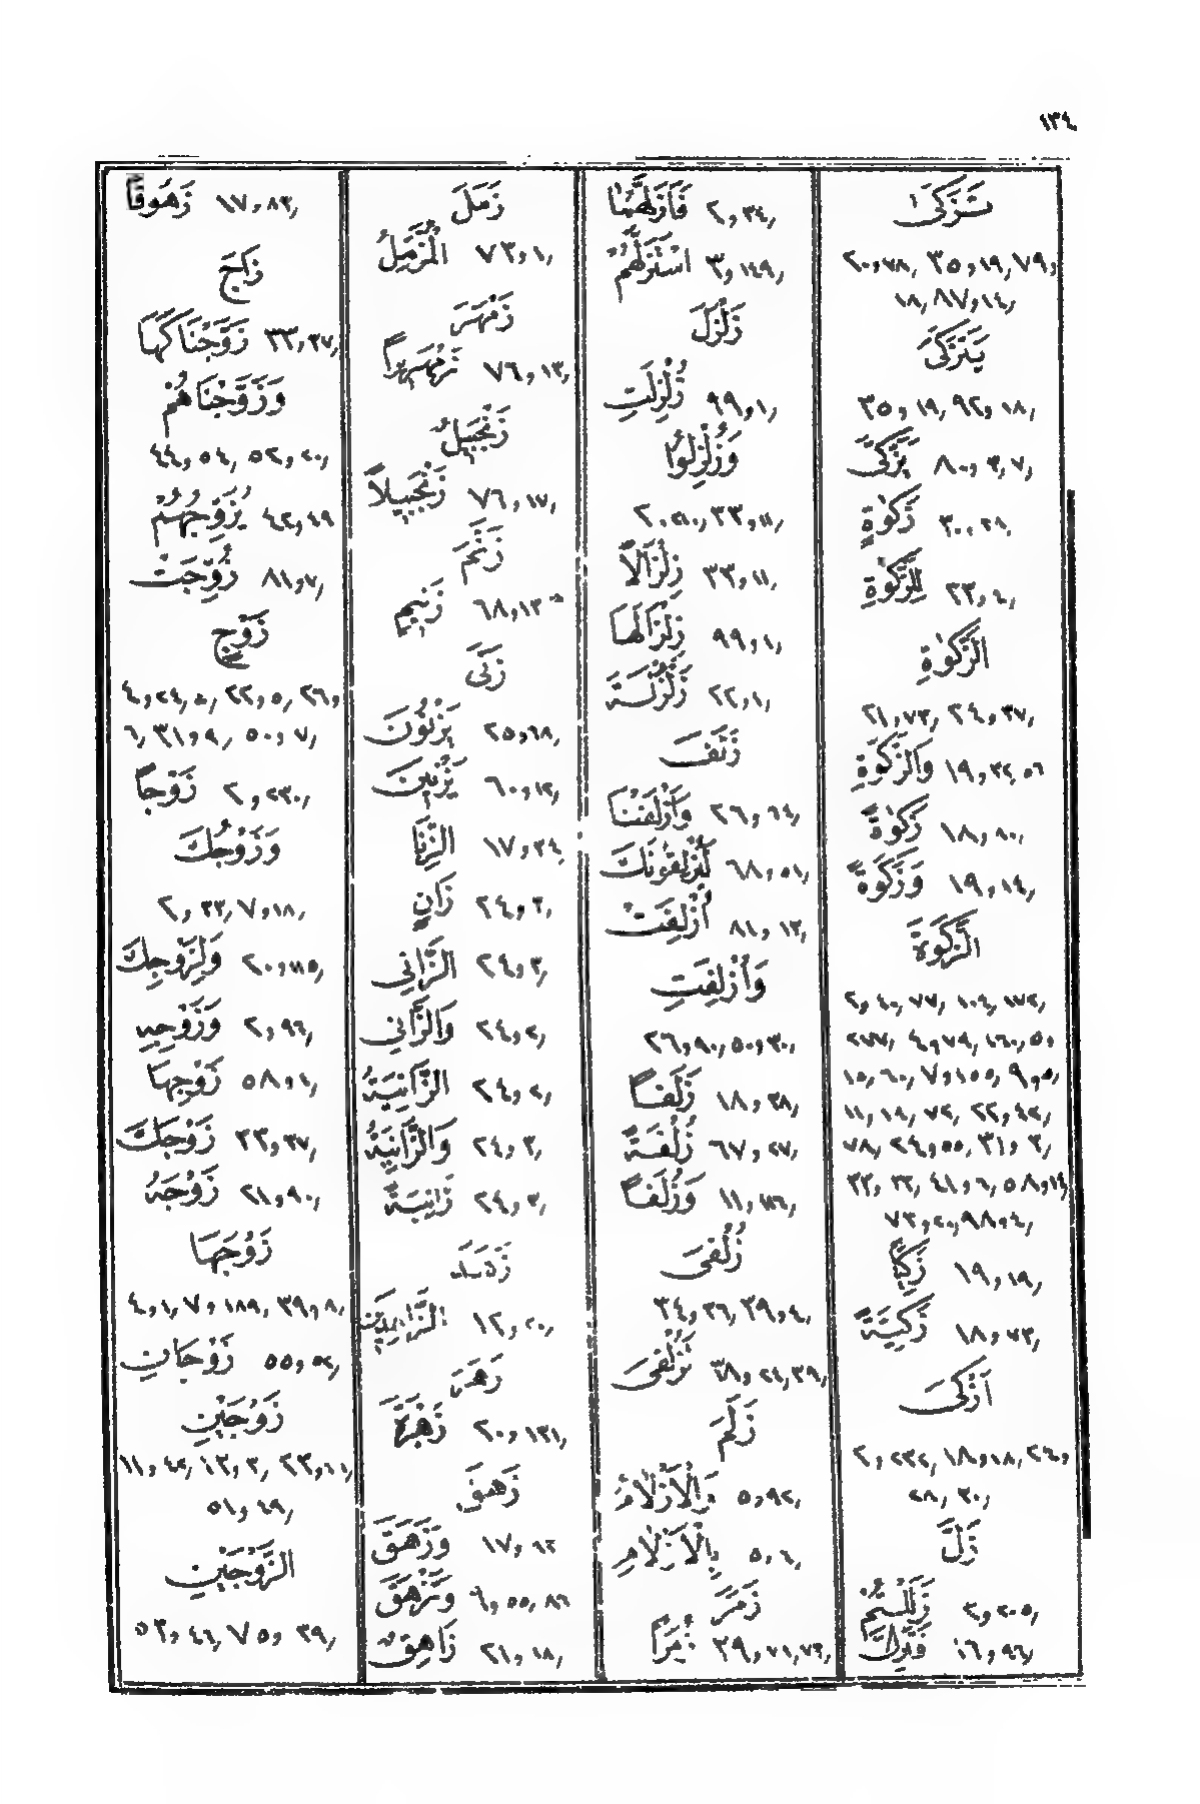 ١٣٤
تَزَكّٰى
٢٠,٧٨, ٣٥,١٩, ٧٩,
١٨, ٨٧,١٤,
يَتَزَكّٰى
٣٥,١٩, ٩٢,١٨,
يَزَّكّٰى ٨٠,٣,٧,
زَكٰوةٍ ٣٠,٣٨,
لِلزَّكٰوةِ ٢٣,٤,
الزَّكٰوةِ
٢١,٧٣, ٢٤,٣٧,
وَالزَّكٰوةِ ١٩,٣٢,٥٦
زَكٰوةً ١٨,٨٠,
وَزَكٰوةً ١٩,١٤,
الزَّكٰوةَ
٢,٤٠,٧٧, ١٠٤,١٧٢,
٢٧٧, ٤,٧٩,١٦٠,٥,
١٥,٦٠, ٧,١٥٥, ٩,٥,
١١,١٨,٧٢, ٢٢,٤٢,
٧٨, ٢٤,٥٥, ٣١,٣,
٣٣,٣٣, ٤١,٦, ٥٨,١٤,
٧٣,٢٠, ٩٨,٤,
زَكِيًّا ١٩,١٩,
زَكِيَّةً ١٨,٧٣,
اَزْكٰى
٢,٢٣٢, ١٨,١٨, ٢٤,
٢٨, ٣٠,
زَلَّ
زَلَلْتُمْ ٢,٢٠٥,
فَتَزِلَّ ١٦,٩٦,
فَاَزَلَّهُمَا ٢,٣٤,
اسْتَزَلَّهُمُ ٣,١٤٩,
زَلْزَلَ
زُلْزِلَتِ ٩٩,١,
وَزُلْزِلُوْا
٢,٢١٠, ٣٣,١١,
زِلْزَالًا ٣٣,١١,
زِلْزَالَهَا ٩٩,١,
زَلْزَلَةَ ٢٢,١,
زَلَفَ
وَاَزْلَفْنَا ٢٦,٦٤,
لَيُزْلِقُوْنَكَ ٦٨,٥١,
اُزْلِفَتْ ٨١,١٣,
وَاُزْلِفَتِ
٢٦,٩٠, ٥٠,٣٠,
زَلَقًا ١٨,٣٨,
زُلْفَةً ٦٧,٢٧,
وَزُلَفًا ١١,١١٦,
زُلْفٰى
٣٤,٣٦, ٣٩,٤,
لَزُلْفٰى ٣٨,٢٤,٣٩,
زَلَمَ
وَالْاَزْلَامُ ٥,٩٢,
بِالْاَزْلَامِ ٥,٤,
زَمَرَ
زُمَرًا ٣٩,٧١,٧٣,
زَمَلَ
الْمُزَّمِّلُ ٧٣,١,
زَمْهَرَ
زَمْهَرِيْرًا ٧٦,١٣,
زَنْجَبِيْلُ
زَنْجَبِيْلًا ٧٦,١٧,
زَنَمَ
زَنِيْمٍ ٦٨,١٣
زَنٰى
يَزْنُوْنَ ٢٥,٦٨,
يَزْنِيْنَ ٦٠,١٢,
الزِّنَا ١٧,٣٤,
زَانٍ ٢٤,٣,
الزَّانِى ٢٤,٣,
وَالزَّانِى ٢٤,٢,
الزَّانِيَةُ ٢٤,٢,
وَالزَّانِيَةُ ٢٤,٣,
زَانِيَةً ٢٤,٣,
زَهَدَ
الزَّاهِدِيْنَ ١٢,٢٠,
زَهَرَ
زَهْرَةَ ٢٠,١٣١,
زَهَقَ
وَزَهَقَ ١٧,٨٣
وَتَزْهَقَ ٩,٥٥, ٨٦
زَاهِقٌ ٢١,١٨,
زَهُوْقًا ١٧,٨٣,
زَوَّجَ
زَوَّجْنَاكَهَا ٣٣,٣٧,
وَزَوَّجْنَاهُمْ
٤٤,٥٤, ٥٢,٢٠,
يُزَوِّجُهُمْ ٤٢,٤٩
زُوِّجَتْ ٨١,٧,
زَوْجٍ
٤,٢٤, ٢٢,٥, ٢٦,
٦, ٣١,٩, ٥٠,٧,
زَوْجًا ٢,٢٣٠,
وَزَوْجُكَ
٢,٣٣, ٧,١٨,
وَلِزَوْجِكَ ٢٠,١١٥,
وَزَوْجِهٖ ٢,٩٦,
زَوْجِهَا ٥٨,١,
زَوْجَكَ ٣٣,٣٧,
زَوْجَهُ ٢١,٩٠,
زَوْجَهَا
٤,١, ٧,١٨٩, ٣٩,٨,
زَوْجَانِ ٥٥,٥٢,
زَوْجَيْنِ
١١,٤٢, ١٣,٣, ٢٣,٢٦,
٥١,٤٩,
الزَّوْجَيْنِ
٥٣,٤٦, ٧٥, ٣٩,